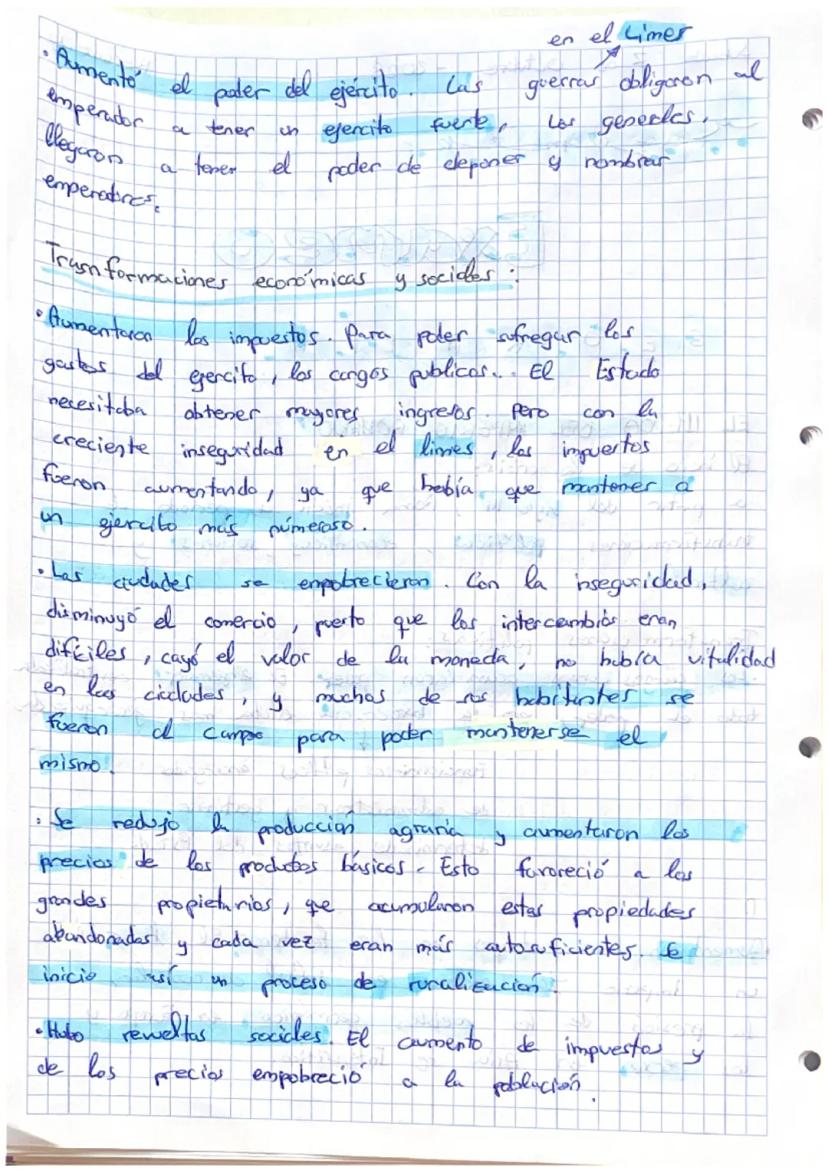 en el Limes
• Aumentó el poder del ejército. Las guerras obligaron al
emperador a tener un ejercito fuerte, los generales,
llegaron a tener el poder de deponer y nombrar
emperadores.
Trasnformaciones económicas y sociales :
• Aumentaron los impuestos. Para poder sufregar los
gastos del ejercito, los cargos publicos... El Estado
necesitaba obtener mayores ingresos. Pero con la
creciente inseguridad en el limes, los impuestos
fueron aumentando, ya que había que mantener a
un ejercito más númeroso.
• Las ciudades se empobrecieron. Con la inseguridad,
disminuyó el comercio, puesto que los intercambiós eran
difíciles, cayó el valor de la moneda, no había vitalidad
en las ciudades, y muchos de sus habitantes se
fueron al campo para poder mantenerse el
mismo.
• Se redujo la producción agraria y aumentaron los
precios de los productos básicos. Esto favoreció a los
grandes propietarios, que acumularon estas propiedades
abandonadas y cada vez eran más autosuficientes. Se
inicio así un proceso de ruralización.
• Hubo revueltas sociales. El aumento de impuestos y
de los precios empobreció a la población.